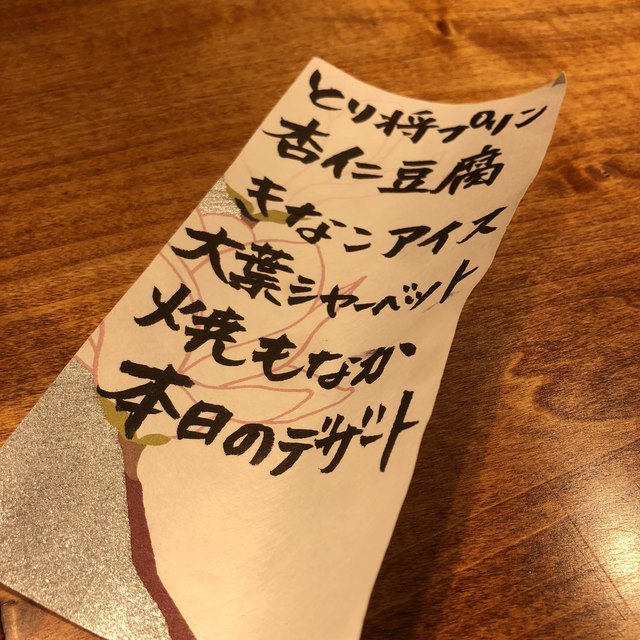 とり将プリン
杏仁豆腐
きなこアイス
大葉シャーベット
焼もなか
本日のデザート